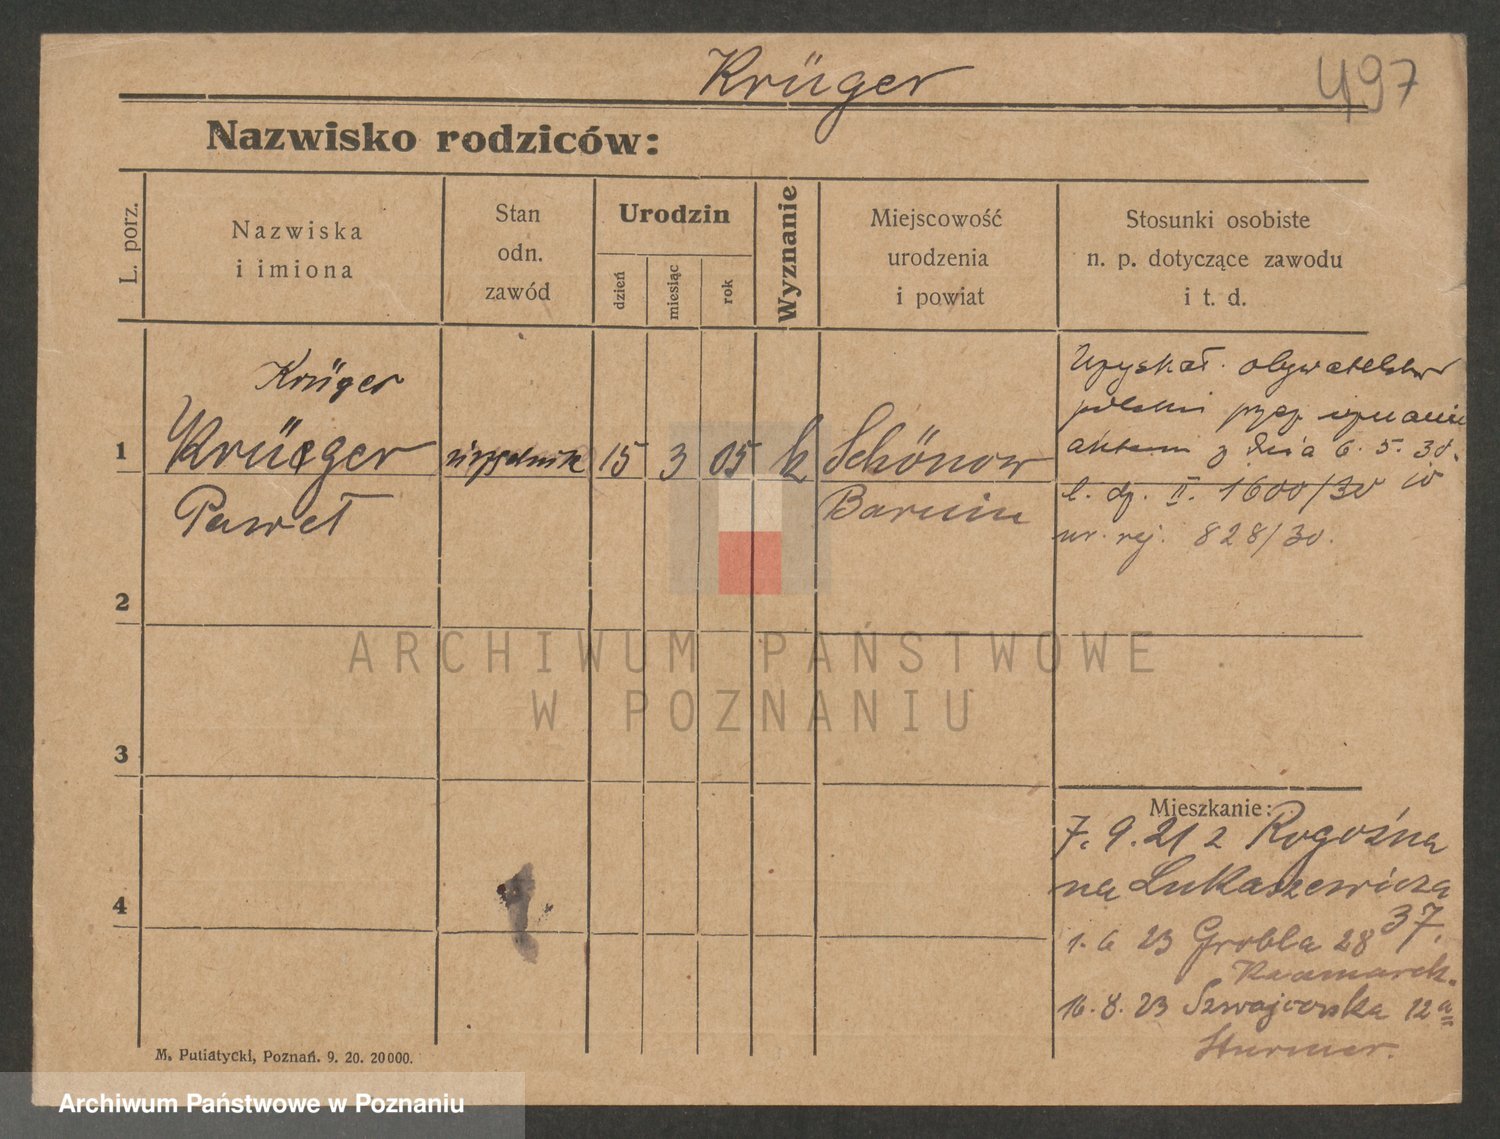 Krüger
497
Nazwisko rodziców:
L. porz.
Nazwiska
i imiona
Stan
odn.
zawód
Urodzin
dzień
miesiąc
rok
Wyznanie
Miejscowość
urodzenia
i powiat
Stosunki osobiste
n. p. dotyczące zawodu
i t. d.
Krüger
1
Krüeger
urzędnik
15
3
05
k
Schönow
Paweł
Barnim
Uzyskał obywatelstwo
polskie przez uznanie
aktem z dnia 6. 5. 30.
l. dz. II. 1600/30
nr. rej. 828/30.
2
3
4
Mieszkanie:
7. 9. 21 z Rogoźna
na Łukaszewicza
37.
1. 6 23 Grobla 28
16. 8. 23 Szwajcarska 12a
Sturmer.
M. Putiatycki, Poznań. 9. 20. 20000.
ARCHIWUM PAŃSTWOWE
W POZNANIU
Archiwum Państwowe w Poznaniu